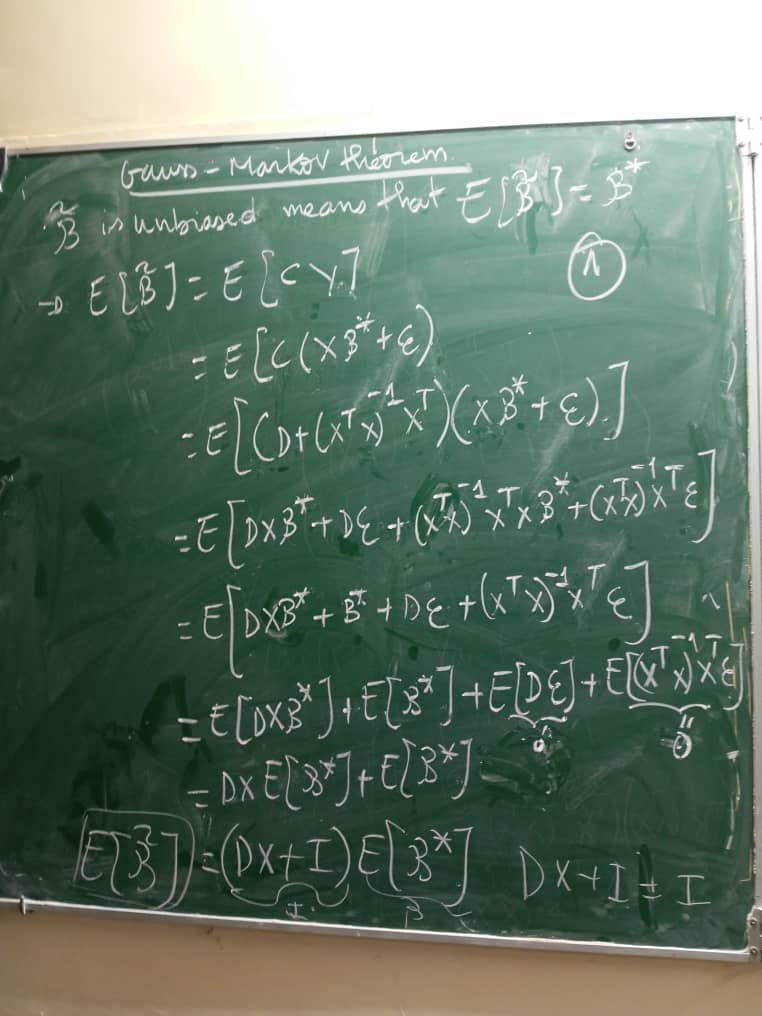 Gauss-Markov theorem.
B̃ is unbiased means that E[B̃] = B*
→ E[B̃] = E[CY]
①
= E[C(XB*+ε)
= E[(D+(XᵀX)⁻¹Xᵀ)(XB*+ε)]
= E[DXB*+Dε+(XᵀX)⁻¹XᵀXB*+(XᵀX)⁻¹Xᵀε]
= E[DXB*+B*+Dε+(XᵀX)⁻¹Xᵀε]
= E[DXB*]+E[B*]+E[Dε]+E[(XᵀX)⁻¹Xᵀε]
0 0
= DXE[B*]+E[B*]
E[B̃] = (DX+I)E[B*] DX+I = I
I B